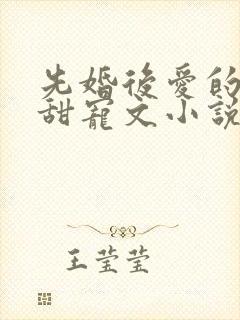 先婚後愛的
甜寵文小說
王莹莹